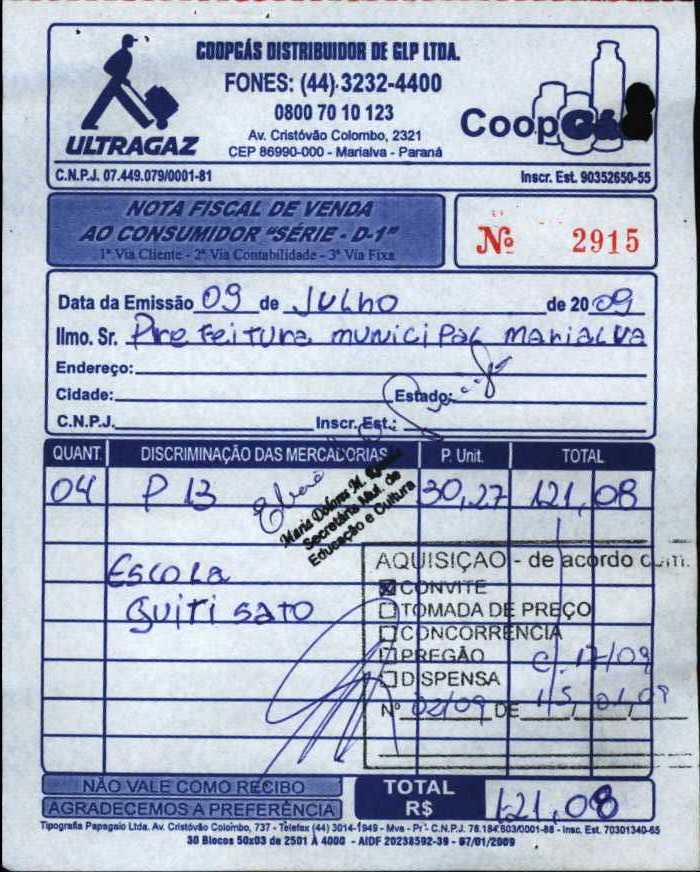 COOPGÁS DISTRIBUIDOR DE GLP LTDA.
FONES: (44) 3232-4400
0800 70 10 123
Av. Cristóvão Colombo, 2321
CEP 86990-000 - Marialva - Paraná
ULTRAGAZ
CoopGás
C.N.P.J. 07.449.079/0001-81
Inscr. Est. 90352650-55
NOTA FISCAL DE VENDA
AO CONSUMIDOR "SÉRIE - D-1"
1ª Via Cliente - 2ª Via Contabilidade - 3ª Via Fixa
Nº 2915
Data da Emissão 09 de JULHO de 2009
Ilmo. Sr. Prefeitura municipal marialva
Endereço:
Cidade: Estado:
C.N.P.J. Inscr. Est.:
QUANT. DISCRIMINAÇÃO DAS MERCADORIAS P. Unit. TOTAL
04 P 13 30,27 121,08
Maria Dolores M.
Secretária Mul. de
Educação e Cultura
Escola
Quiti sato
AQUISIÇÃO - de acordo com:
CONVITE
TOMADA DE PREÇO
CONCORRENCIA
PREGÃO C. 17/09
DISPENSA
Nº 02/09 DE 15, 01, 09
NÃO VALE COMO RECIBO
AGRADECEMOS A PREFERÊNCIA
TOTAL
R$ 121,08
Tipografia Papagaio Ltda. Av. Cristóvão Colombo, 737 - Telefax (44) 3014-1949 - Mva - Pr - C.N.P.J. 78.184.603/0001-88 - Insc. Est. 70301340-65
30 Blocos 50x03 de 2501 À 4000 - AIDF 20238592-39 - 07/01/2009